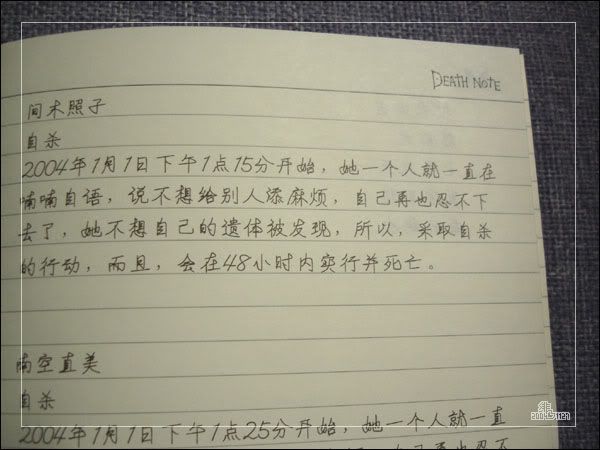 DEATH NOTE
间木照子
自杀
2004年1月1日下午1点15分开始，她一个人就一直在
喃喃自语，说不想给别人添麻烦，自己再也忍不下
去了，她不想自己的遗体被发现，所以，采取自杀
的行动，而且，会在48小时内实行并死亡。
南空直美
自杀
2004年1月1日下午1点25分开始，她一个人就一直
自己再也忍不